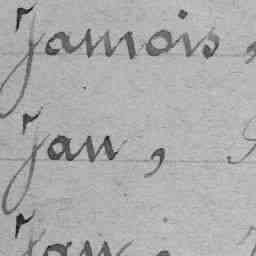 Jamois,
Jan,